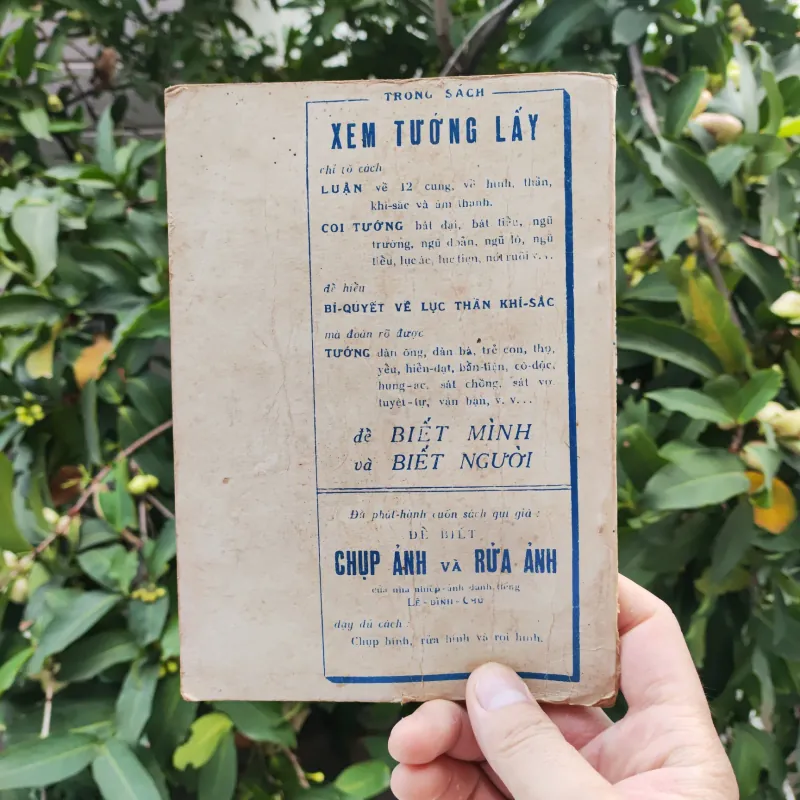 TRONG SÁCH
XEM TƯỚNG LẤY
chỉ rõ cách
LUẬN về 12 cung, về hình, thần,
khí-sắc và âm thanh.
COI TƯỚNG bát đại, bát tiểu, ngũ
trường, ngũ đoản, ngũ lộ, ngũ
tiểu, lục ác, lục tiện, nốt ruồi v...
để hiểu
BÍ-QUYẾT VỀ LỤC THÂN KHÍ-SẮC
mà đoán rõ được
TƯỚNG đàn ông, đàn bà, trẻ con, thọ,
yểu, hiển-đạt, bần-tiện, cô-độc,
hung-ác, sát chồng, sát vợ
tuyệt-tự, vân vân, v. v...
để BIẾT MÌNH
và BIẾT NGƯỜI
Đã phát-hành cuốn sách quí giá :
ĐỂ BIẾT
CHỤP ẢNH VÀ RỬA ẢNH
của nhà nhiếp-ảnh danh tiếng
LÊ-ĐÌNH-CHỮ
dạy đủ cách :
Chụp hình, rửa hình và rọi hình.